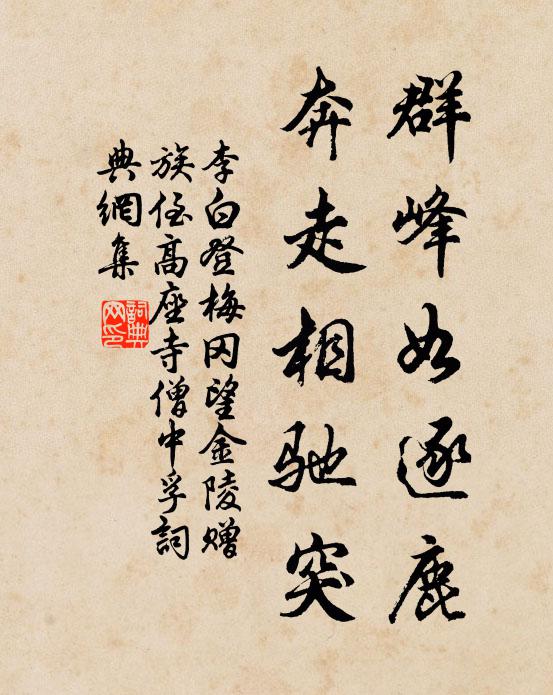 群峰如逐鹿
奔走相馳突
李白登梅冈望金陵赠
族侄高座寺僧中孚詞
典網集
詞典
网印